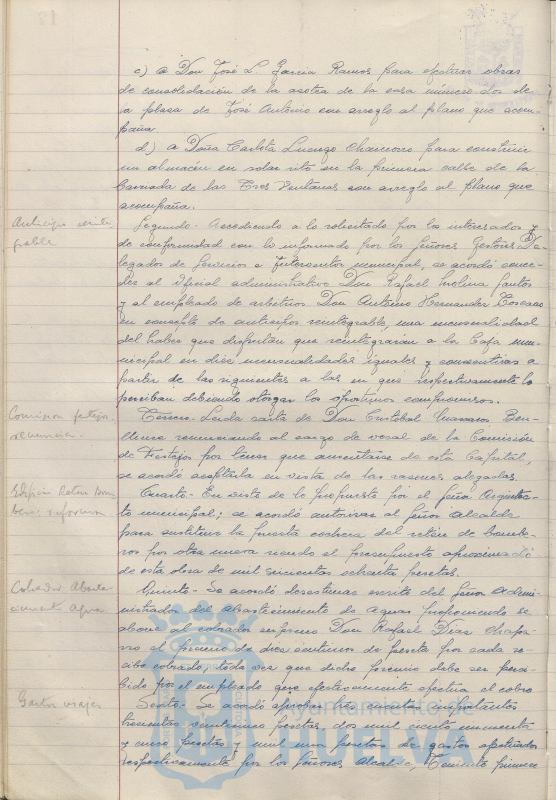 c) a Don José L. García Ramos para efectuar obras
de consolidación de la azotea de la casa número dos de
la plaza de José Antonio con arreglo al plano que acom-
paña.
d) a Doña Carlota Luengo Chamorro para construir
un almacén en solar sito en la primera calle de la
barriada de las Tres Ventanas con arreglo al plano que
acompaña.
Anticipo reinte
grable
Segundo- Accediendo a lo solicitado por los interesados y
de conformidad con lo informado por los señores Gestores De-
legados de Servicios e Interventor municipal, se acordó conce-
der al Oficial administrativo Don Rafael Molina
y al empleado de arbitrios Don Antonio Hernandez Toscano
en concepto de anticipo reintegrable, una mensualidad
del haber que disfrutan que reintegrarán a la Caja mu-
nicipal en diez mensualidades iguales y consecutivas a
partir de las siguientes a las en que respectivamente lo
perciban debiendo otorgar los oportunos compromisos.
Comision festejos.
renuncia.
Tercero- Leida carta de Don Cristobal Ben-
renunciando al cargo de vocal de la Comisión
de Festejos por tener que ausentarse de esta Capital,
se acordó aceptarla en vista de las razones alegadas.
Edificio Reten Bom
beros reforma
Cuarto- En vista de lo propuesto por el señor Arquitec-
to municipal; se acordó autorizar al señor Alcalde
para sustituir la puerta cochera del retén de bombe-
ros por otra nueva siendo el presupuesto aproximado
de esta obra de mil quinientas ochenta pesetas.
Cobrador Abaste
cimiento Agua
Quinto- Se acordó desestimar escrito del señor Admi-
nistrador del abastecimiento de aguas proponiendo se
abone al cobrador Don Rafael Díaz Chapa-
rro el premio de diez céntimos de peseta por cada re-
cibo cobrado, toda vez que dicho premio debe ser perci-
bido por el empleado que efectivamente efectua el cobro
Gastos viajes
Sexto- Se acordó aprobar las cuentas importantes
trescientas veinticinco pesetas, dos mil ciento cincuenta
y cinco pesetas y mil una pesetas de gastos efectuados
respectivamente por los señores Alcalde, Teniente primero
Ayuntamiento de
HUELVA